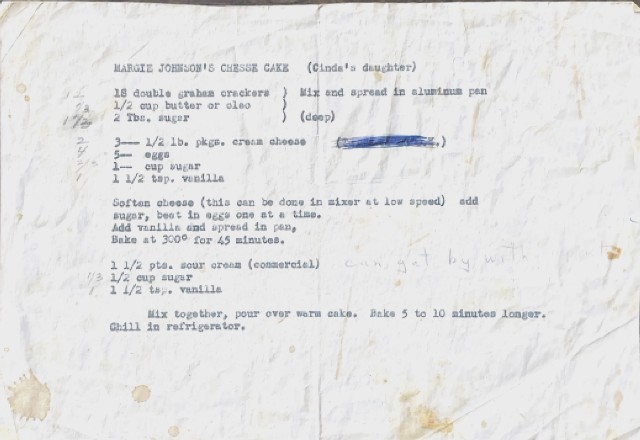 MARGIE JOHNSON'S CHESSE CAKE (Cinda's daughter)
18 double graham crackers ) Mix and spread in aluminum pan
1/2 cup butter or oleo )
2 Tbs. sugar ) (deep)
3-- 1/2 lb. pkgs. cream cheese
5-- eggs
1-- cup sugar
1 1/2 tsp. vanilla
Soften cheese (this can be done in mixer at low speed) add
sugar, beat in eggs one at a time.
Add vanilla and spread in pan,
Bake at 300° for 45 minutes.
1 1/2 pts. sour cream (commercial) can get by with
1/3 1/2 cup sugar
1 1 1/2 tsp. vanilla
Mix together, pour over warm cake. Bake 5 to 10 minutes longer.
Chill in refrigerator.